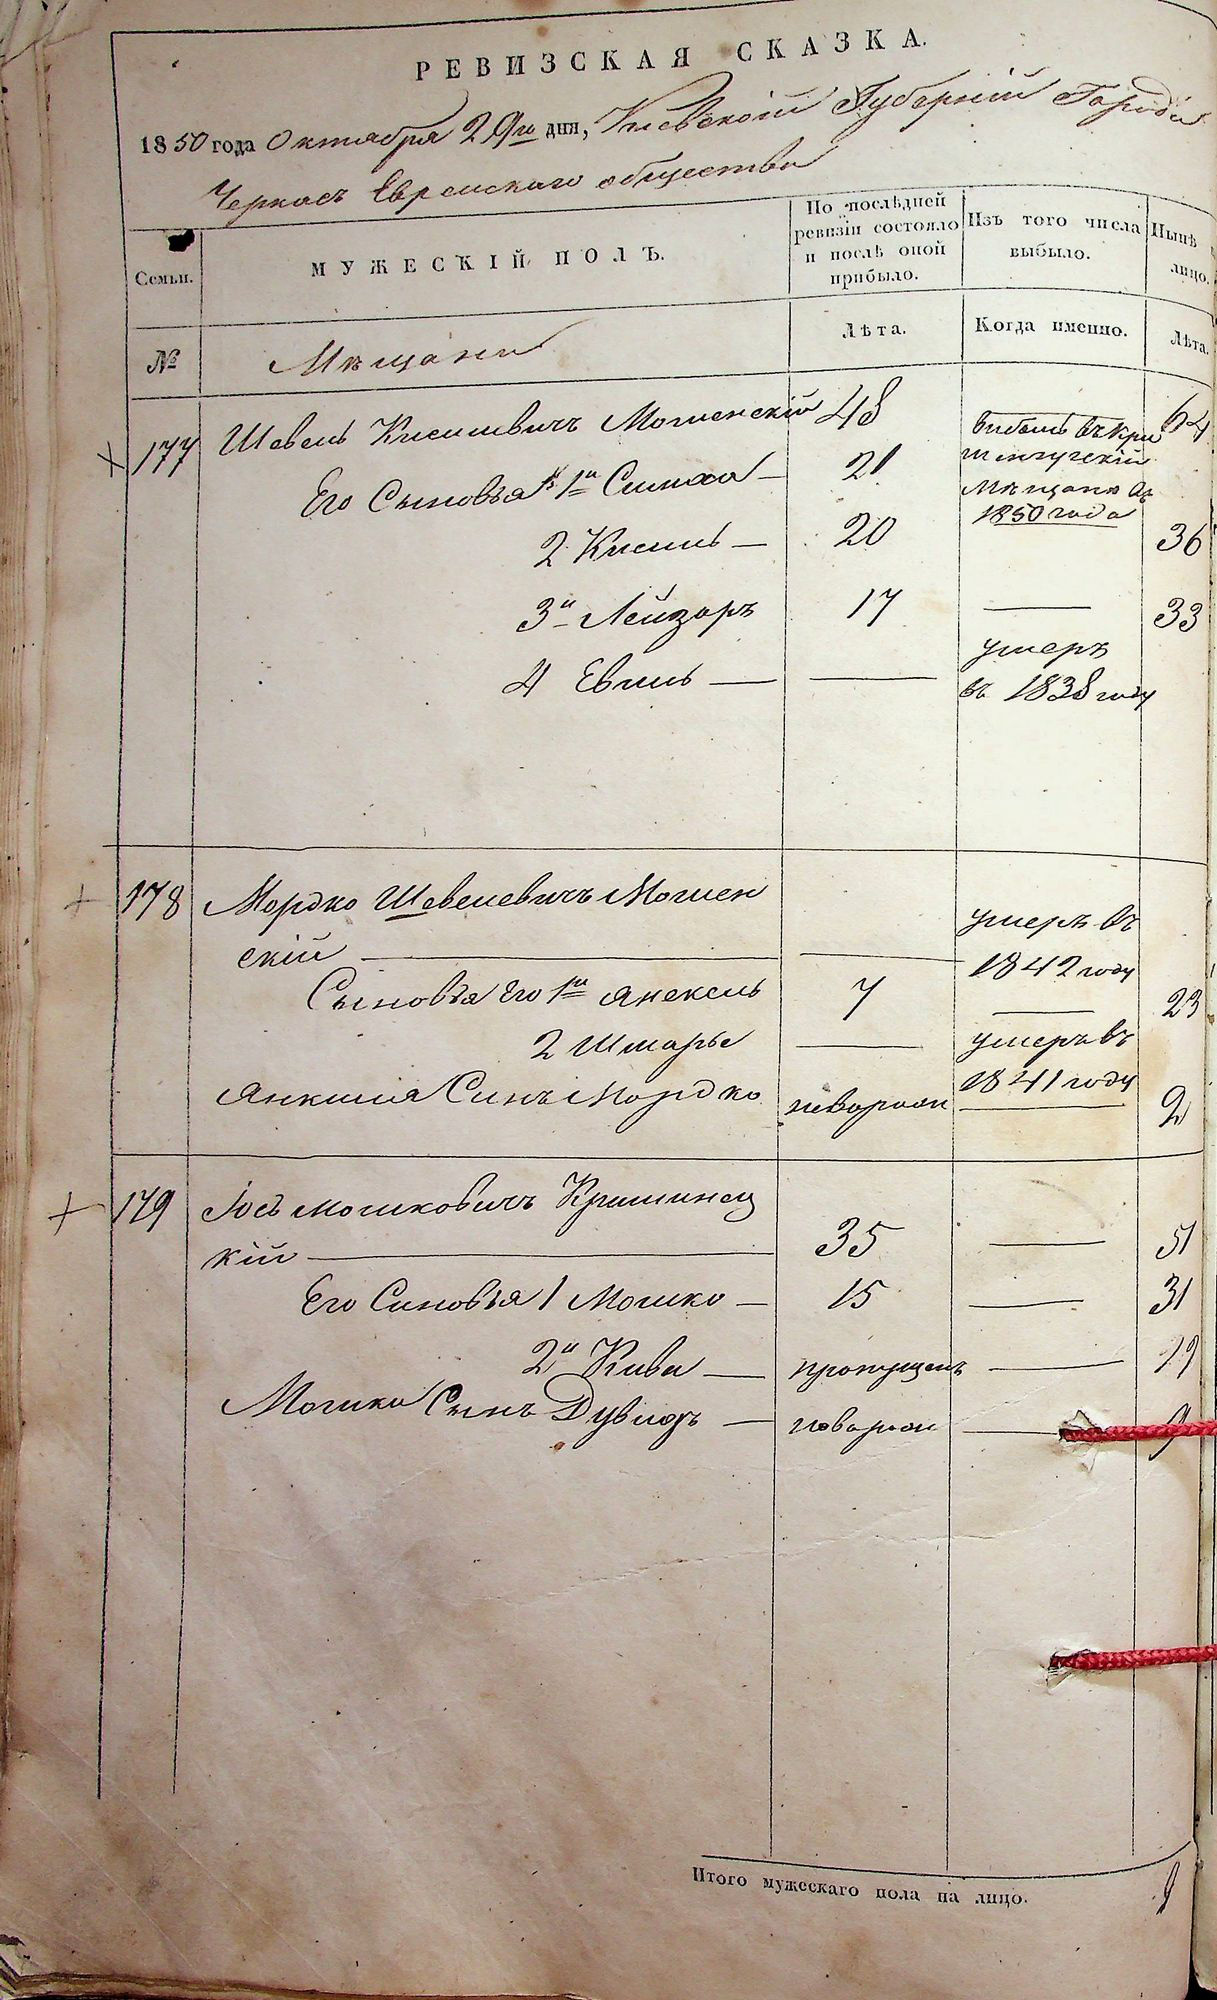 РЕВИЗСКАЯ СКАЗКА.
1850 года Октября 29го дня, Киевской Губерний Города
Черкасъ Еврейскаго общества
Семьи.
МУЖЕСКІЙ ПОЛЪ.
По послѣдней ревизіи состояло и послѣ оной прибыло.
Изъ того числа выбыло.
Нынѣ на лицо.
№
Мѣщани
Лѣта.
Когда именно.
Лѣта.
177 Шевель Кисилевичъ Мошенскій 48 64
Его Сыновья 1й Симха — 21 выбылъ въ Кри
менчугскій
мѣщани въ
1850 года
2 Кисиль — 20 36
3й Лейзоръ 17 — 33
4 Евель — — умеръ
въ 1838 году
178 Мордко Шевелевичъ Мошен
скій — — умеръ въ
1842 году
Сыновья Его 1й Янкель 7 — 23
2 Шмарье — умеръ въ
1841 году
Янкиля Синъ Мордко новорож — 2
179 Іось Мошковичъ Кришинец
кій — 35 — 51
Его Синовья 1 Мошко — 15 — 31
2й Кива — пропущенъ — 19
Мошка Сынъ Дувидъ — новорож — 9
Итого мужескаго пола на лицо. 9